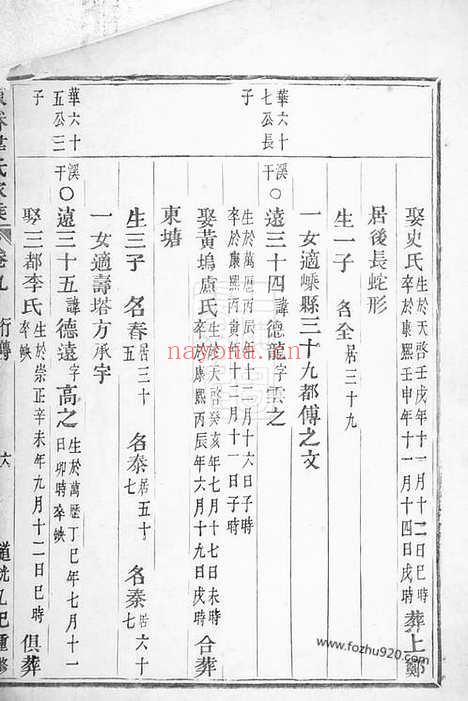 娶史氏生於天啓壬戌年十一月十二日巳時卒於康熙壬申年十一月十四日戌時葬上鄭
居後長蛇形
生一子 名全居三十九
一女適嵊縣三十九都傅之文
華六十七公長子
溪干○遠三十四諱德龍字雲之生於萬歷丙辰年十二月十六日子時卒於康熙丙寅年十二月十一日子時
娶黃塢盧氏生於天啓癸亥年七月十七日未時卒於康熙丙辰年六月十九日戌時合葬
東塘
生三子 名春居三十五 名泰居五十七 名秦居六十七
一女適壽塔方承宇
華六十五公三子
溪干○遠三十五諱德遠字高之生於萬歷丁巳年七月十一日卯時卒缺
娶三都李氏生於崇正辛未年九月十二日巳時卒缺俱葬
氏家乘 卷九 行傳 六 道光九巳重修
nayona.cn
www.fozhu920.com